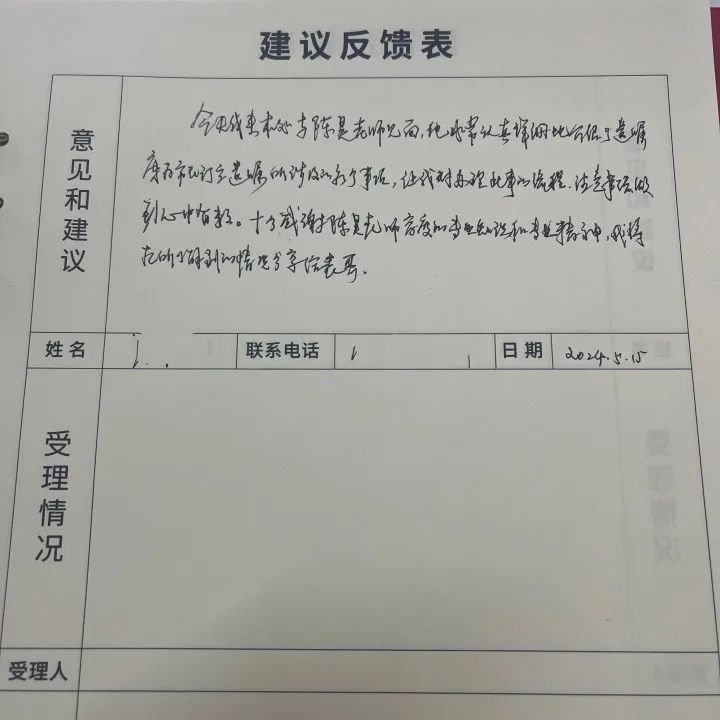 建议反馈表
意见和建议
今天我来本处与陈昊老师见面,他非常认真详细地介绍了遗嘱
库和订立遗嘱所涉及的有事项,让我对办理此事的流程、注意事项做
到心中有数。十分感谢陈昊老师高度的专业知识和专业精神,我将
把所了解到的情况分享给表哥。
姓名
联系电话
日期 2024.5.15
受理情况
受理人